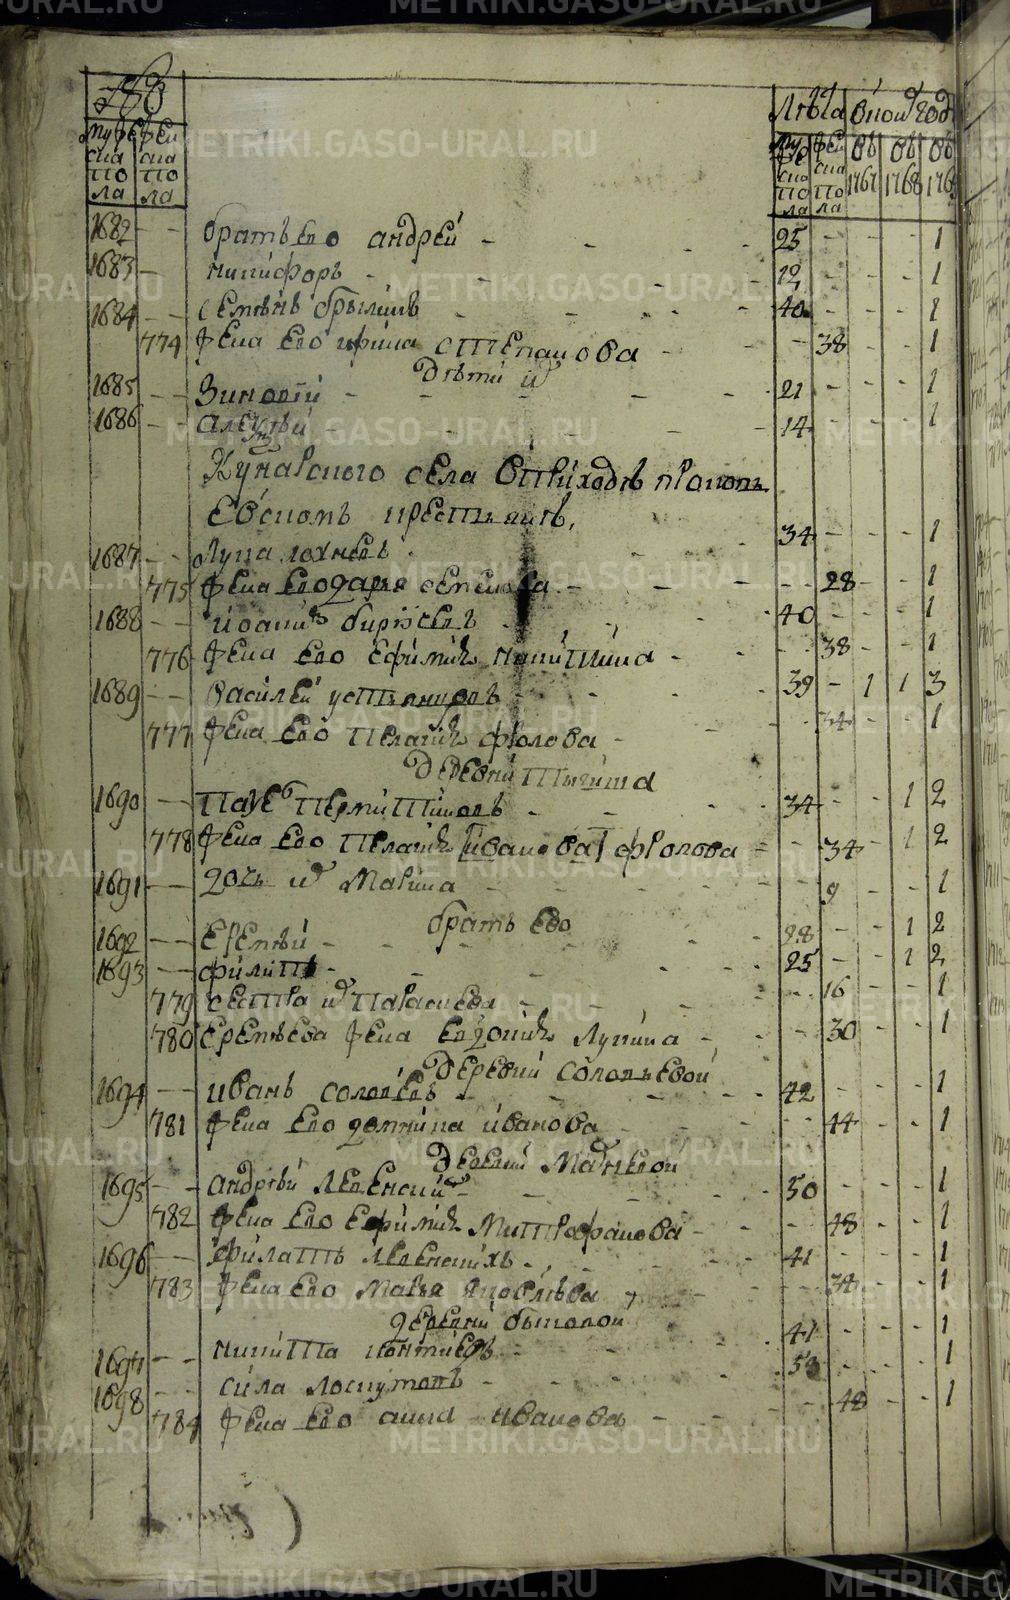 283
мужеска пола женска пола лета мужеска пола женска пола в коих годех
въ 1767 въ 1768 въ 1769
1682 - - братъ ево андрей - - - - 25 - - - 1
1683 - - никифоръ - - - - - - - 1
1684 - - семенъ брылинъ - - - 40 - - - 1
774 жена ево ирина степанова - - - 38 - - 1
дѣти ихъ
1685 - - Зиновей - - - - 21 - - - 1
1686 - - алексѣй - - - - 14 - - - 1
Кунарского села в приходѣ прокопь
евскомъ крестьянъ,
1687 - - Лука - - 34 - - - 1
775 жена ево дарья семенова - - - 28 - - 1
1688 - - иванъ бирюсевъ - - 40 - - - 1
776 жена ево ефимия никитина - - - 38 - - 1
1689 - - василей устьянцовъ - - - 39 - 1 1 3
777 жена ево пелагия фролова - - - 34 - - 1
деревни пышша
1690 - - павелъ пермитиновъ - - - 34 - - 1 2
778 жена ево пелагия [иванова] фролова - - 34 - 1 2
1691 - - дочь ихъ марина - - - 9 - - 1
братъ ево
1692 - - еремѣй - - - 28 - - 1 2
1693 - - филипъ - - - 25 - - 1 2
779 сестра ихъ параскева - - - 16 - - 1
780 еремѣева жена евдокия Лукина - - - 30 - - 1
деревни соловьевой
1694 - - иванъ соловьевъ - - - 42 - - - 1
781 жена ево домнина иванова - - - 44 - - 1
деревни
1695 - - андрѣй левенских - - - 50 - - - 1
782 жена ево ефимия митрофанова - - - 48 - - 1
1696 - - филатъ левенскихъ - - - 41 - - - 1
783 жена ево марья яковлѣва - - - 34 - - 1
деревни быковой
1697 - - никита - - 41 - - - 1
1698 - - сила лоскутовъ - - 53 - - - 1
784 жена ево анна иванова - - - 48 - - 1
METRIKI.GASO-URAL.RU